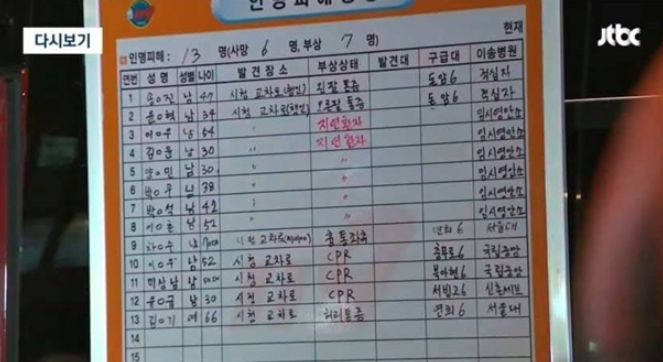 다시보기
jtbc
현재
인명피해 : 13 명(사망 6 명, 부상 7 명)
연번 성 명 성별 나이 발 견 장 소 부상상태 발견대 구급대 이송병원
1 송○진 남 47 시청 교차로 통증 동암6 적십자
2 윤○현 남 34 시청 교차로 통증 동암6 적십자
3 이○우 남 54 〃 지연환자 임시영안소
4 김○윤 남 30 〃 지연환자 임시영안소
5 양○민 남 30 〃 〃 임시영안소
6 박○우 남 38 〃 〃 임시영안소
7 박○석 남 42 〃 〃 임시영안소
8 이○ 남 52 〃 〃 임시영안소
9 차○ 시청 교차로 흉통 6 서울대
10 이○ 남 52 시청 교차로 CPR 6 국립중앙
11 미상남 남 시청 교차로 CPR 북아현6 국립중앙
12 윤○ 남 30 시청 교차로 CPR 6 신촌세브
13 김○기 여 66 시청 교차로 허리통증 6 서울대
14
15